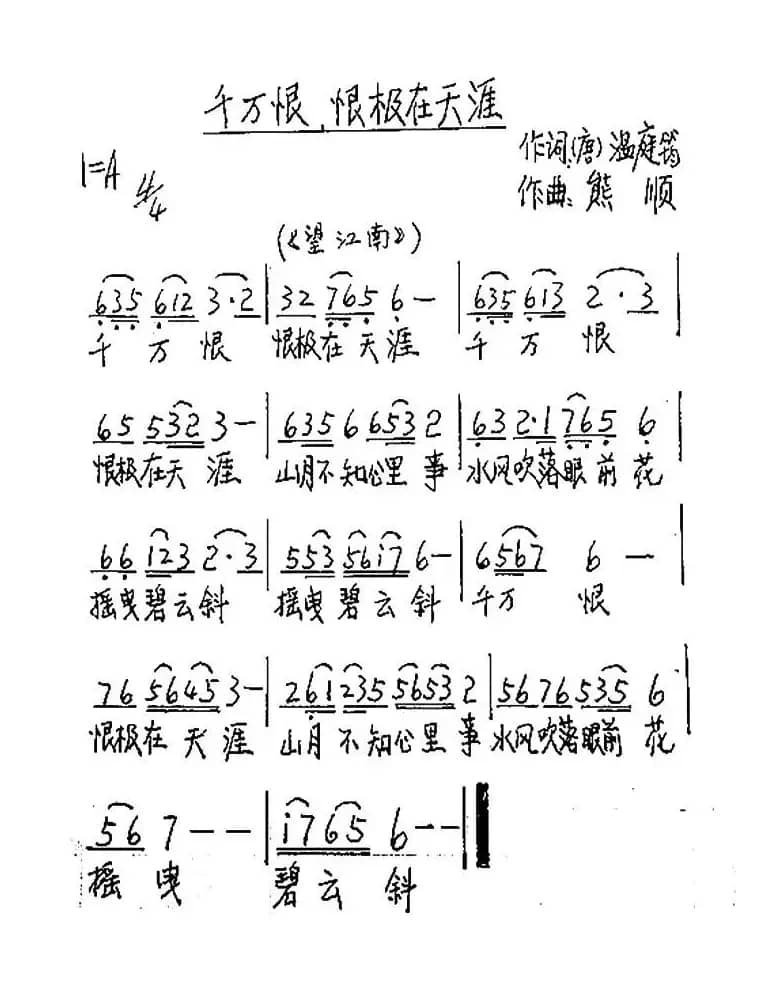 千万恨,恨极在天涯
作词:(唐)温庭筠
1=A 4/4
作曲:熊 顺
(《望江南》)
635 612 3·2 | 32 765 6 — | 635 613 2·3 |
千 万 恨 恨极在 天涯 千 万 恨
65 532 3 — | 635 6 653 2 | 632·1 765 6 |
恨极在天 涯 山月不知心里 事 水风吹落眼 前 花
66 123 2·3 | 553 56i7 6 — | 6567 6 — |
摇曳碧云斜 摇曳 碧 云 斜 千万 恨
76 5645 3 — | 261 235 5653 2 | 56 76 535 6 |
恨极在 天 涯 山月 不知心里 事 水风吹落眼前 花
56 7 — — | i765 6 — — ‖
摇 曳 碧 云 斜